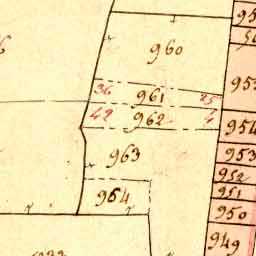 960
36 961 25
42 962 4
963
954
954
953
952
951
950
949